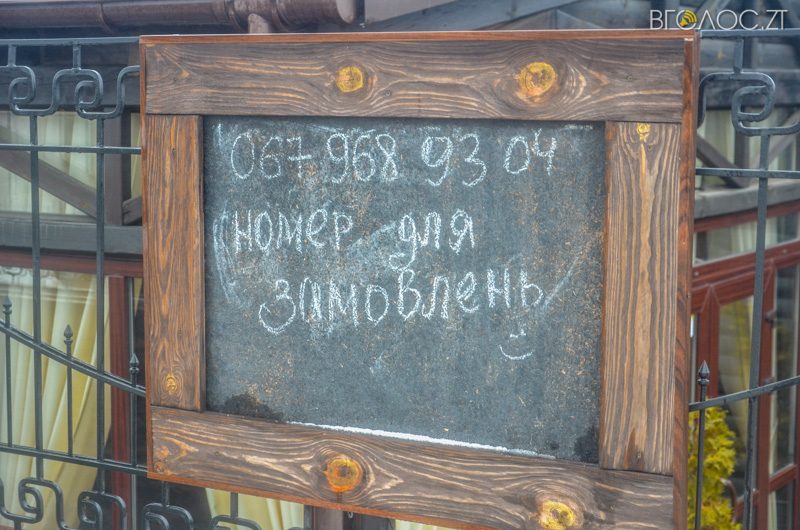 ВГОЛОС.ZT
067 968 93 04
номер для
замовлень